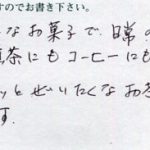 すのでお書き下さい。
なお菓子で、日常の
茶にもコーヒーにも
とぜいたくなお
す。